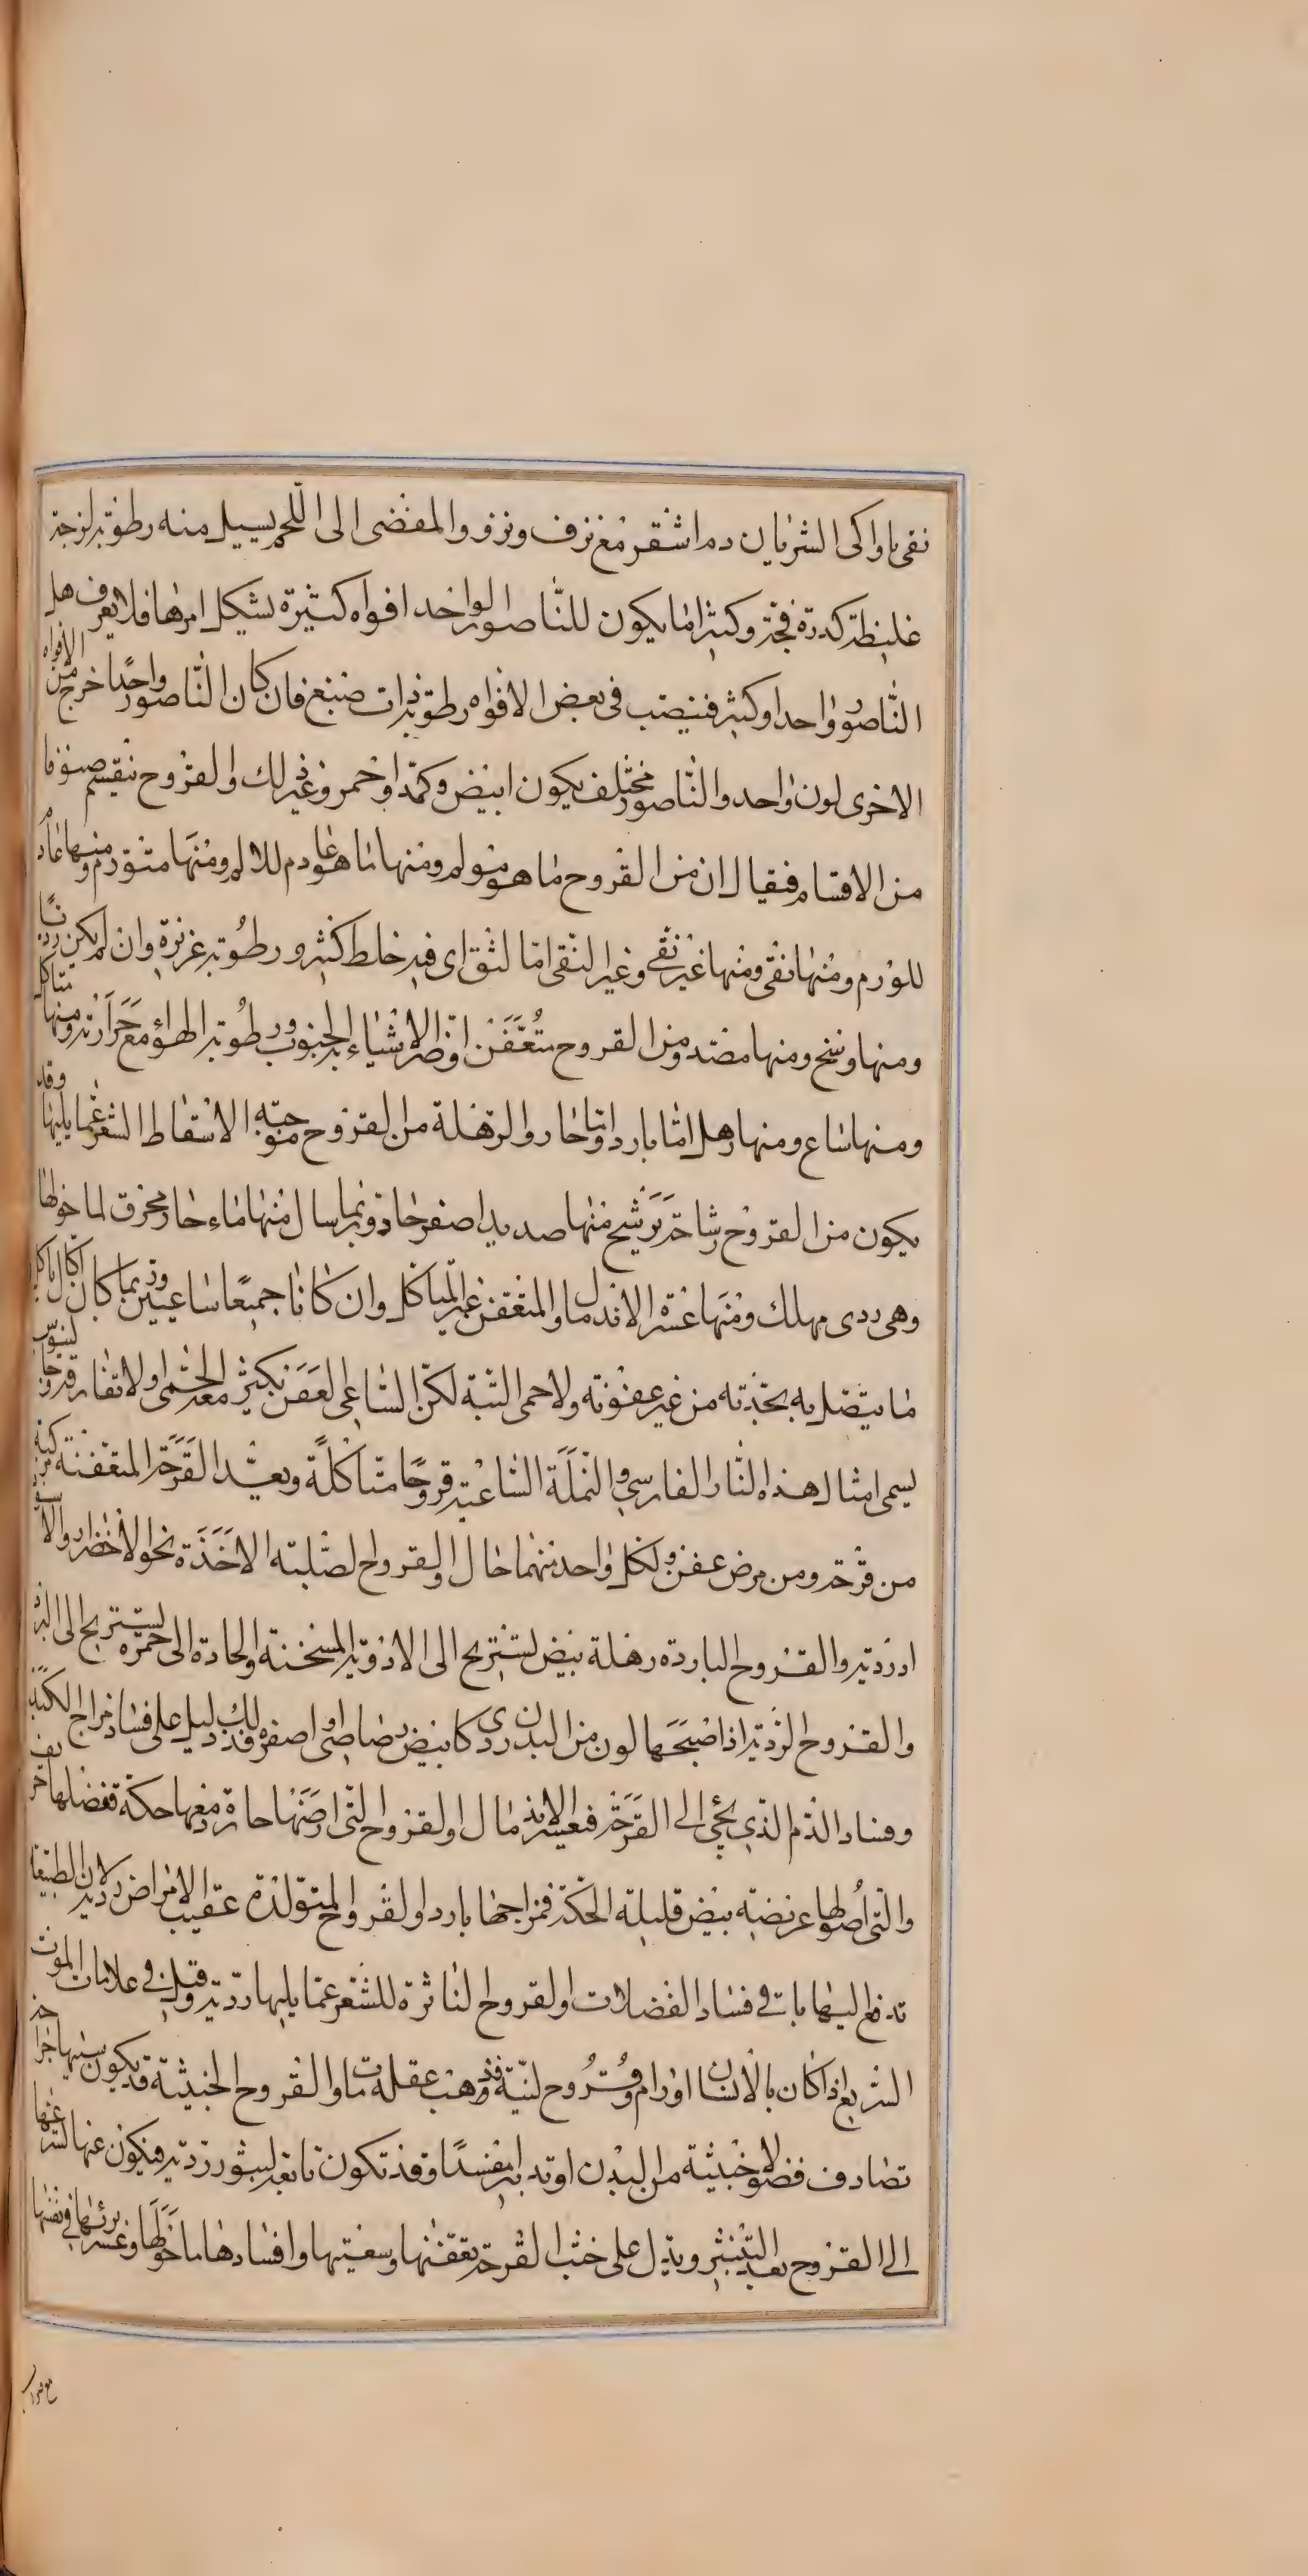 نقى ما واكى الشريان دم اشقر مع نزف ونزو والمفضى الى اللحم يسيل منه رطوبة لزجة
غليظة كدرة فجة وكثيرا ما يكون للناصور الواحد افواه كثيرة يشكل امرها فلا يعرف هل
الناصور واحد او كثير فيصب فى بعض الافواه رطوبة ذات صبغ فان كان الناصور واحدا خرج من الافواه
الاخرى لون واحد والناصور مختلف يكون ابيض وكمدا واحمر وغير ذلك والقروح ينقسم صنوفا
من الاقسام فيقال ان من القروح ما هو مولم ومنها ما هو عادم للالم ومنها متورم ومنها عادم
للورم ومنها نقى ومنها غير نقى وغير النقى اما لثق اى فيه خلط كثير ورطوبة غزيرة وان لم يكن رديا
ومنها وسخ ومنها مضد ومن القروح متعفن اوضر الاشياء به الجنوب ورطوبة الهواء مع حرارته ومنها متاكل
ومنها ساع ومنها رهل اما بارد واما حار والرهلة من القروح موجبة الاسقاط الشعر عما يليها وقد
يكون من القروح رشاحة يرشح منها صديد اصفر حاد وربما سال منها ماء حار محرق لما حولها
وهى ردى مهلك ومنها عسرة الاندمال والمتعفن غير المتاكل وان كانا جميعا ساعيين وربما كان اكال ياكل
ما يتصل به بحدته من غير عفونة ولا حمى البتة لكن الساعى العفن يكثر معه الحمى او لا تفارقه وجالينوس
يسمى امثال هذه النار الفارسى والنملة الساعية قروحا متاكلة ويعد القرحة المتعفنة مركبة
من قرحة ومن مرض عفن ولكل واحد منهما حال والقروح لصلبته الاخذة نحو الاخضار والاسود
ارديه والقروح الباردة رهلة بيض تستريح الى الادوية المسخنة والحادة الى حمرة تستريح الى البرد
والقروح الردية اذا صبحها لون من البدن ردى كابيض رصاصى او اصفر فذلك دليل على فساد مزاج الكبد
وفساد الدم الذى يجئ الى القرحة فيعسر الاندمال والقروح التى ارضها حارة ومعها حكة
والتى اصولها عريضة بيض قليلة الحكة فمزاجها بارد والقروح المتولدة عقيب الامراض ردية لان الطبيعة
تدفع اليها باقى فساد الفضلات والقروح الناثرة للشعر عما يليها ردية وقيل فى علامات الموت
السريع اذا كان بالانسان اورام وقروح لينة فذهب عقله مات والقروح الخبيثة قد يكون سببها جراحة
تصادف فضولا خبيثة من البدن او تدبيرا مفسدا وقد تكون تابعة لبثور ردية فيكون عنها
الى القروح بعد التبثير ويدل على خبث القرحة تعفنها وسعيتها وافسادها ما حولها وعسر برئها فى نفسها